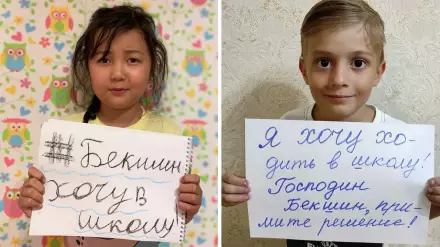 # Бекшин
хочу в
школу!
Я хочу хо-
дить в школу!
Господин
Бекшин, при-
мите решение!